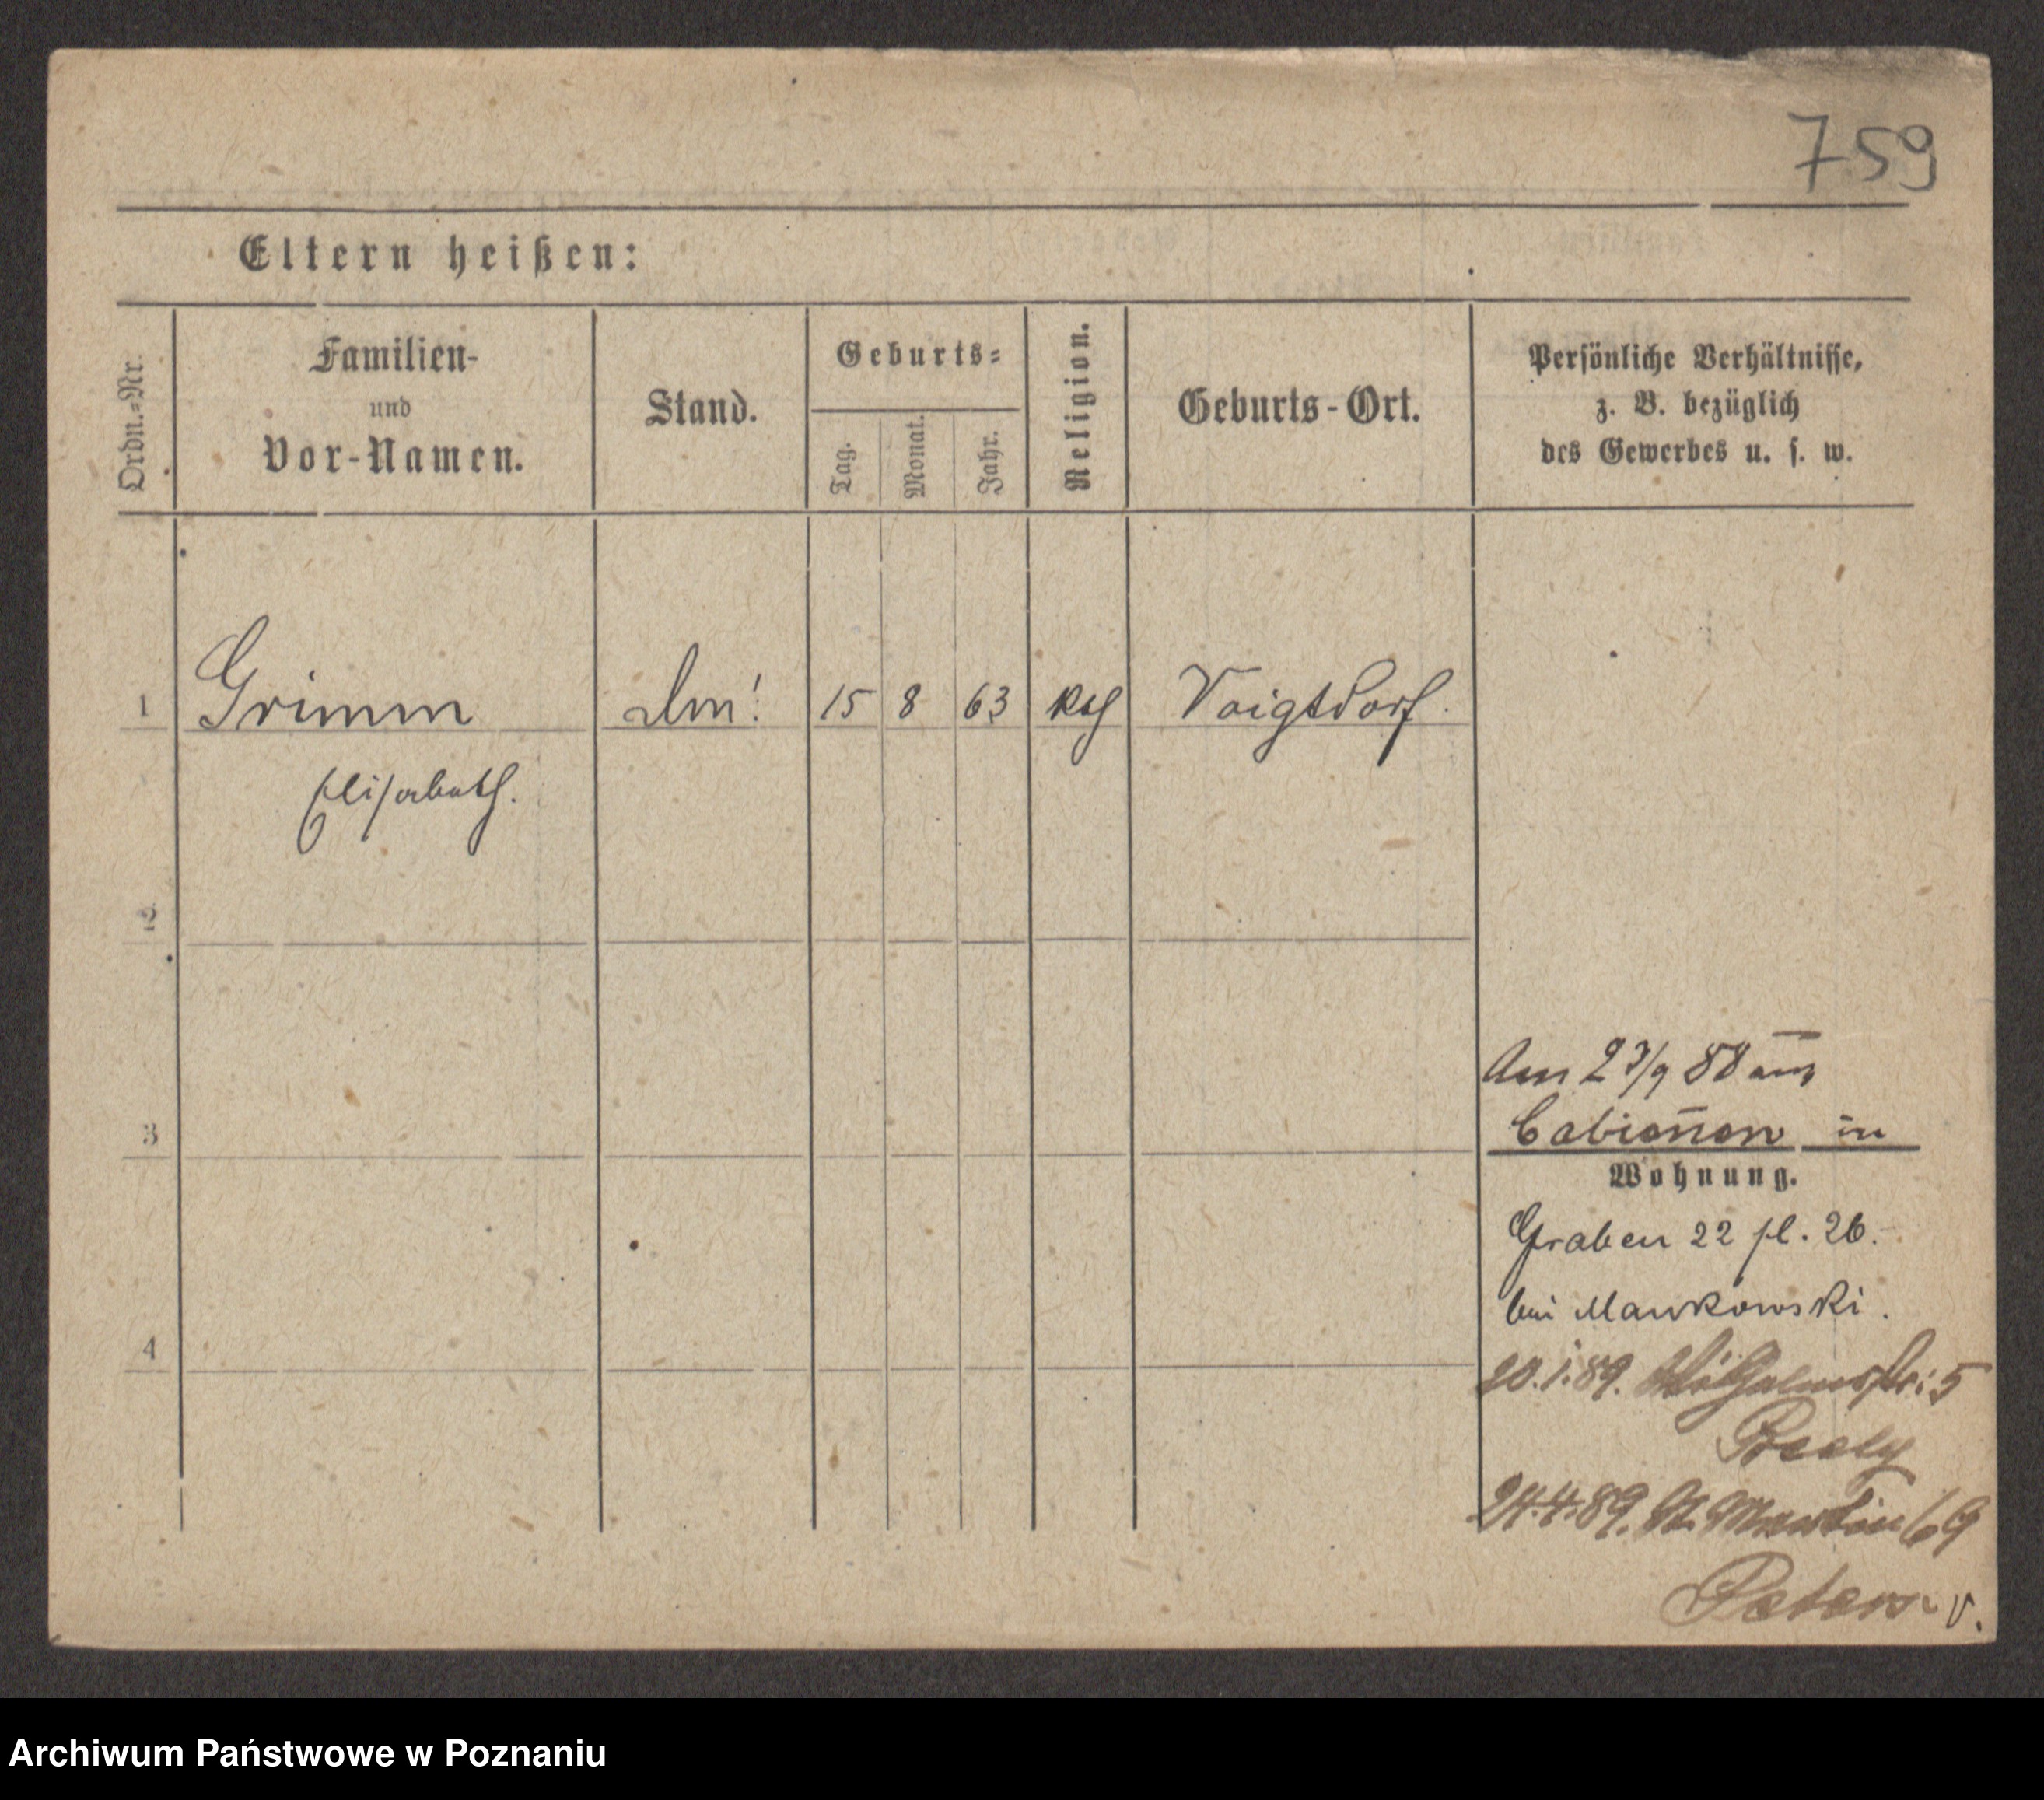 759
Eltern heißen:
Ordn.-Nr.
Familien-
und
Vor-Namen.
Stand.
Geburts-
Tag.
Monat.
Jahr.
Religion.
Geburts-Ort.
Persönliche Verhältnisse,
z. B. bezüglich
des Gewerbes u. s. w.
1 Grimm 15 8 63 kath Voigtdorf.
Elisabeth.
2
Am 23/9 88 aus
in
3
Wohnung.
Graben 22 pl. 26.
bei Mankowski.
4
20.1.89. Wilhelmstr: 5
24.4.89. St. Martin 69
Peters
Archiwum Państwowe w Poznaniu